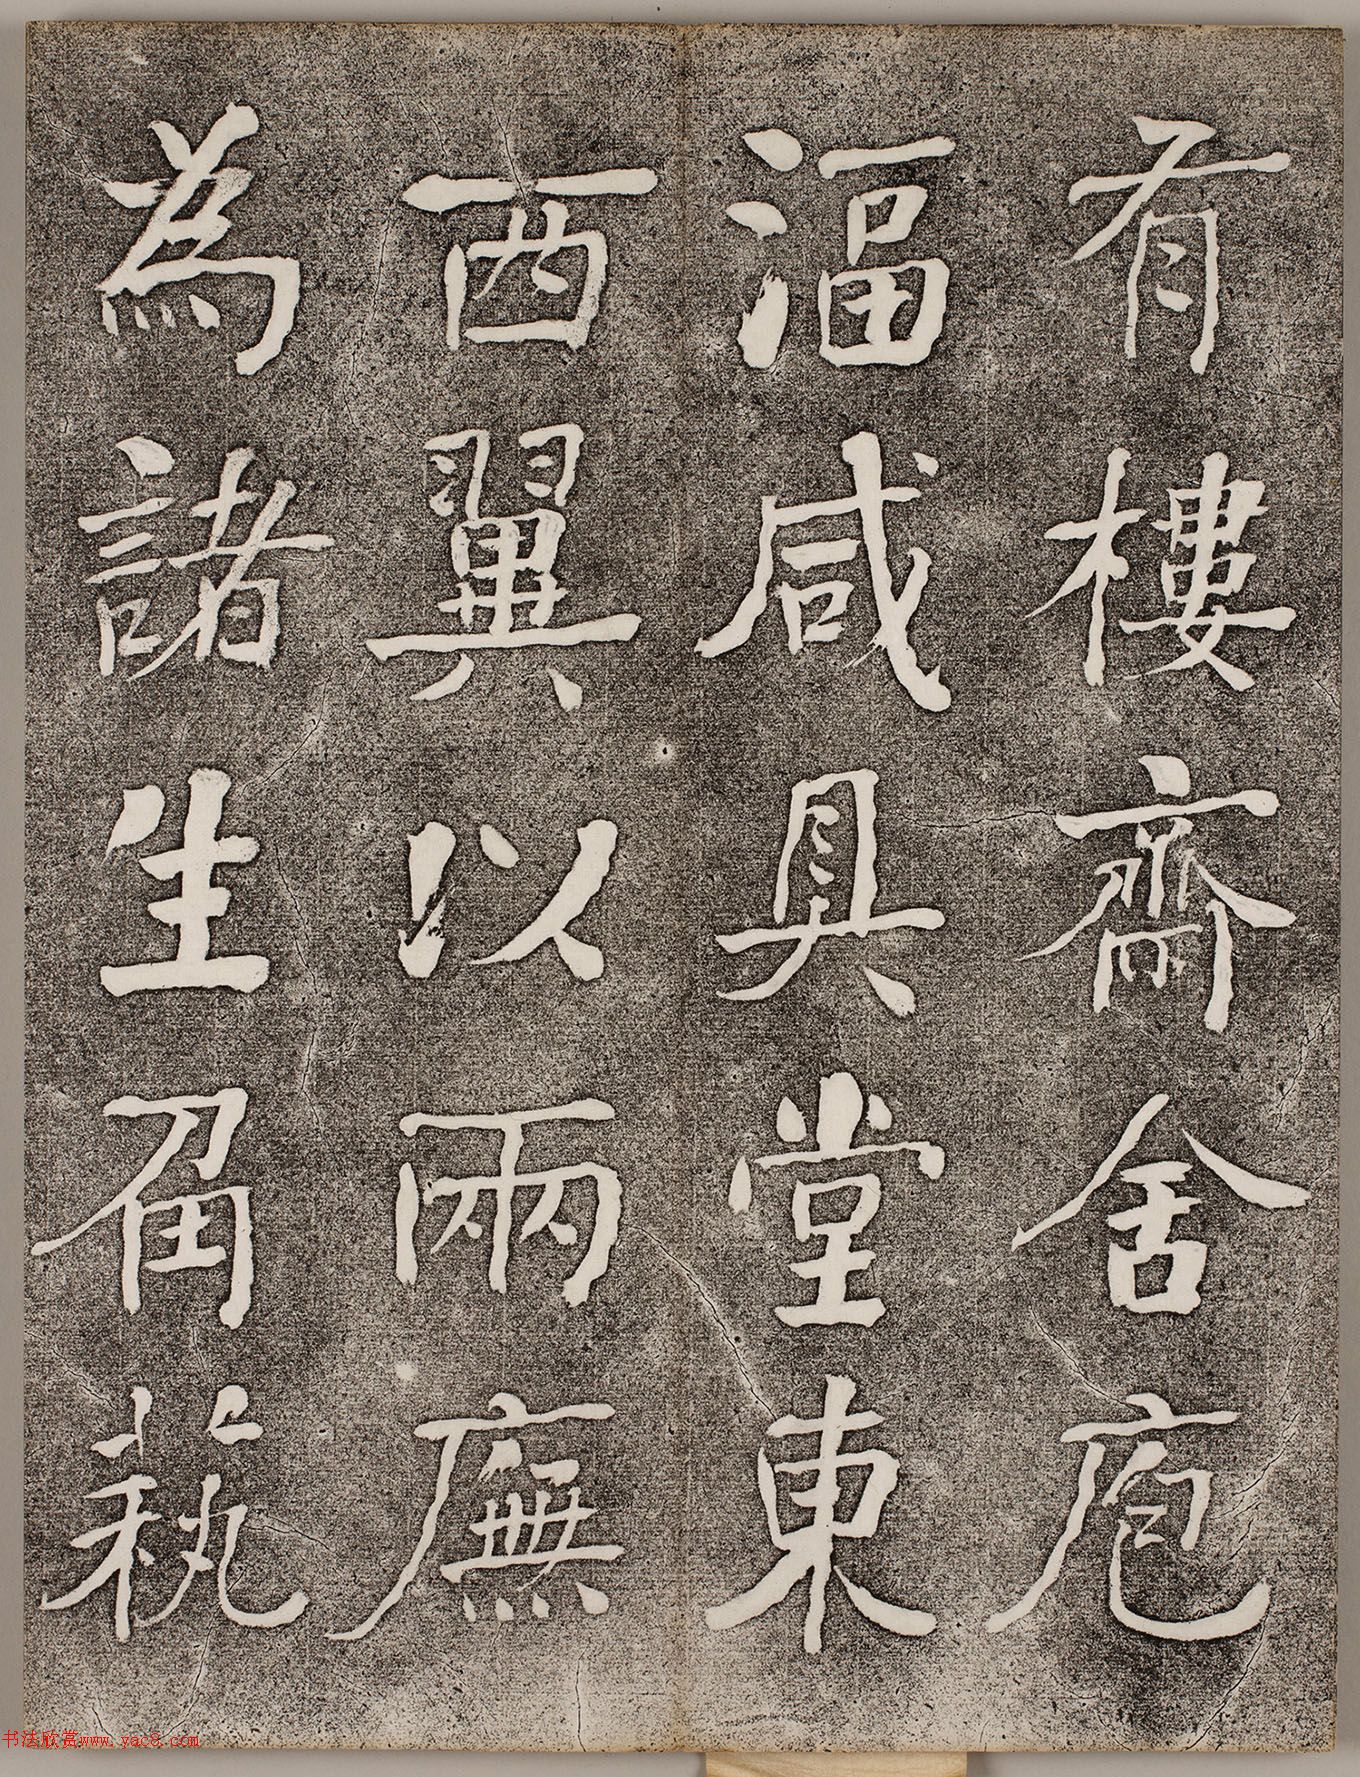 有樓齋舍庖
湢咸具堂東
西翼以兩廡
為諸生角蓺
书法欣赏www.yac8.com